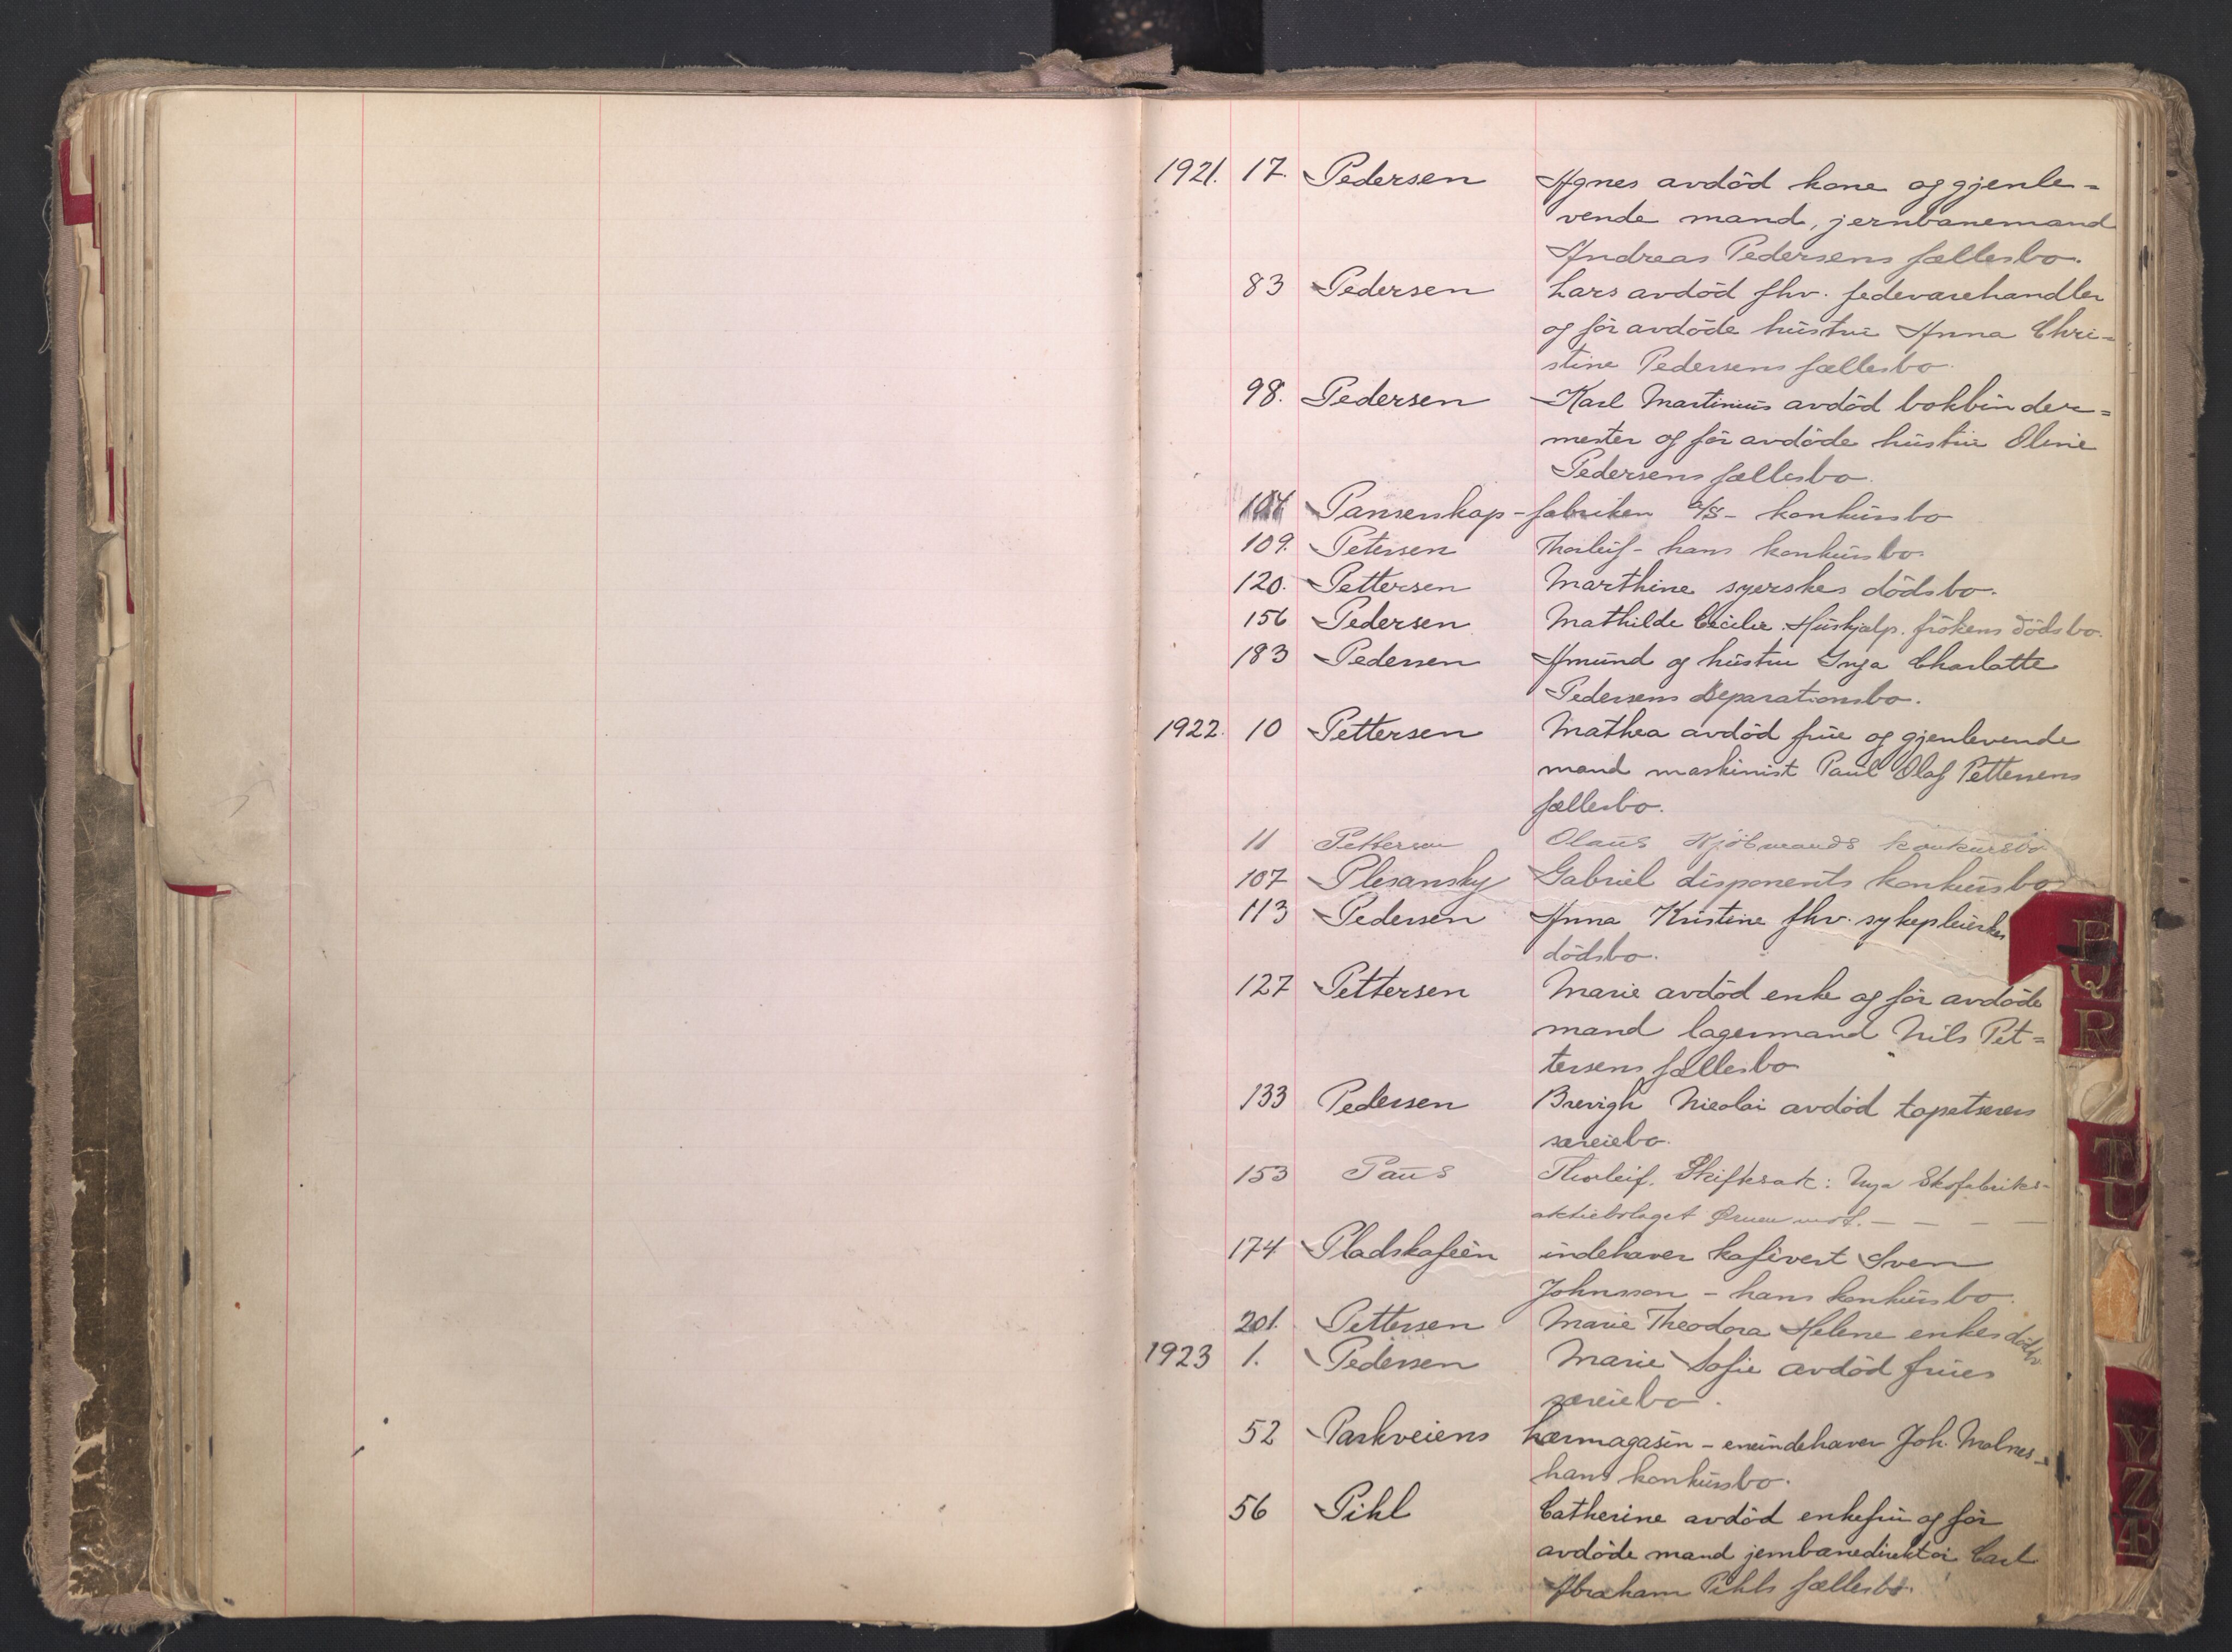 1921. 17. Pedersen Agnes avdöd kone og gjenle-
vende mand, jernbanemand
Andreas Pedersens fællesbo.
83 Pedersen Lars avdöd fhv. fedevarehandler
og för avdöde hustru Anna Chri-
stine Pedersens fællesbo.
98. Pedersen Karl Martinius avdöd bokbinder=
mester og för avdöde hustru Oline
Pedersens fællesbo.
104 Panserskap-fabriken A/S - konkursbo
109. Petersen Thorleif - hans konkursbo.
120. Pettersen Marthine syerskes dödsbo.
156 Pedersen Mathilde Cecilie. Hushjælp. frökens dödsbo.
183 Pedersen Amund og hustru Inga Charlotte
Pedersens Separationsbo.
1922. 10 Pettersen Mathea avdöd frue og gjenlevende
mand maskinist Paul Olaf Pettersens
fællesbo.
11 Pettersen Olaus Kjöbmands konkursbo.
107 Plesansky Gabriel disponents konkursbo
113 Pedersen Anna Kristine fhv. sykepleierskes
dödsbo.
127 Pettersen Marie avdöd enke og för avdöde
mand lagermand Nils Pet=
tersens fællesbo
133 Pedersen Brevigh Nicolai avdöd tapetserers
særeiebo.
153 Paus Thorleif. Skiftesak: Nya Skofabriks-
aktiebolaget Örnen mot. — — — —
174 Pladskafeèn indehaver kafèvert Sven
Johnsson - hans konkursbo.
201. Pettersen Marie Theodora Helene enkes dödsbo
1923 1. Pedersen Marie Sofie avdöd frues
særeiebo.
52 Parkveiens hærmagasin - eneindehaver Joh. Molnes -
hans konkursbo.
56 Pihl Catherine avdöd enkefru og för
avdöde mand jernbanedirektör Carl
Abraham Pihls fællesbo.
P
Q
R
T
U
Y
Z
Æ